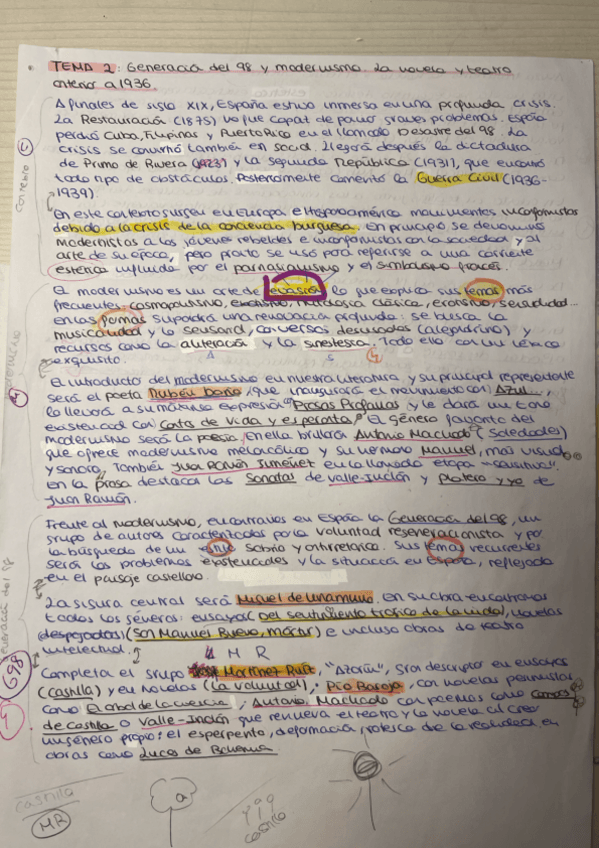 TEMA 2: Generación del 98 y modernismo. La novela y teatro
anterior a 1936
A finales de siglo XIX, España estuvo inmersa en una profunda crisis.
La Restauración (1875) no fue capaz de parar graves problemas. España
perdió Cuba, Filipinas y Puerto Rico en el llamado Desastre del 98. La
crisis se convirtió también en social. Llegará después la dictadura
de Primo de Rivera (1923) y la segunda República (1931), que encontró
todo tipo de obstáculos. Posteriormente comenzó la Guerra Civil (1936-
1939).
Contexto
En este contexto surgen en Europa e Hispanoamérica movimientos inconformistas
debido a la crisis de la conciencia burguesa. En principio se denominó
modernistas a los jóvenes rebeldes e inconformistas con la sociedad y el
arte de su época, pero pronto se usó para referirse a una corriente
estética influida por el parnasianismo y el simbolismo francés.
El modernismo es un arte de evasión lo que explica sus temas más
frecuentes: cosmopolitismo, exotismo, mitología clásica, erotismo, sensualidad...
en las formas supondrá una renovación profunda: se busca la
musicalidad y lo sensorial, con versos desusados (alejandrino) y
recursos como la aliteración y la sinestesia. Todo ello con un léxico
A S
exquisito.
El introductor del modernismo en nuestra literatura y su principal representante
será el poeta Rubén Darío, que inaugurará el movimiento con Azul...,
lo llevará a su máxima expresión "Prosas Profanas" y le dará un tono
existencial con Cantos de vida y esperanza. El género favorito del
modernismo será la poesía. En ella brillarán Antonio Machado (Soledades)
que ofrece modernismo melancólico y su hermano Manuel, más visual
y sonoro. También Juan Ramón Jiménez en la llamada etapa "sensitiva".
en la prosa destacan las Sonatas de Valle-Inclán y Platero y yo de
Juan Ramón.
Frente al modernismo, encontramos en España la Generación del 98, un
grupo de autores caracterizados por la voluntad regeneracionista y por
la búsqueda de un estilo sobrio y antirretórico. Sus temas recurrentes
serán los problemas existenciales y la situación en España, reflejada
en el paisaje castellano.
Generación del 98
La figura central será Miguel de Unamuno en su obra encontramos
todos los géneros: ensayos (Del sentimiento trágico de la vida), novelas
(San Manuel Bueno, mártir) e incluso obras de teatro
intelectual.
M R
Completa el grupo Martínez Ruiz, "Azorín", gran descriptor en ensayos
(Castilla) y en novelas (La voluntad), Pío Baroja, con novelas pesimistas
como El árbol de la ciencia, Antonio Machado con poemas como Campos
de Castilla o Valle-Inclán que renueva el teatro y la novela al crear
un género propio: el esperpento, deformación grotesca de la realidad en
obras como Luces de Bohemia
G98
Castilla
MR
a
yo
castilla